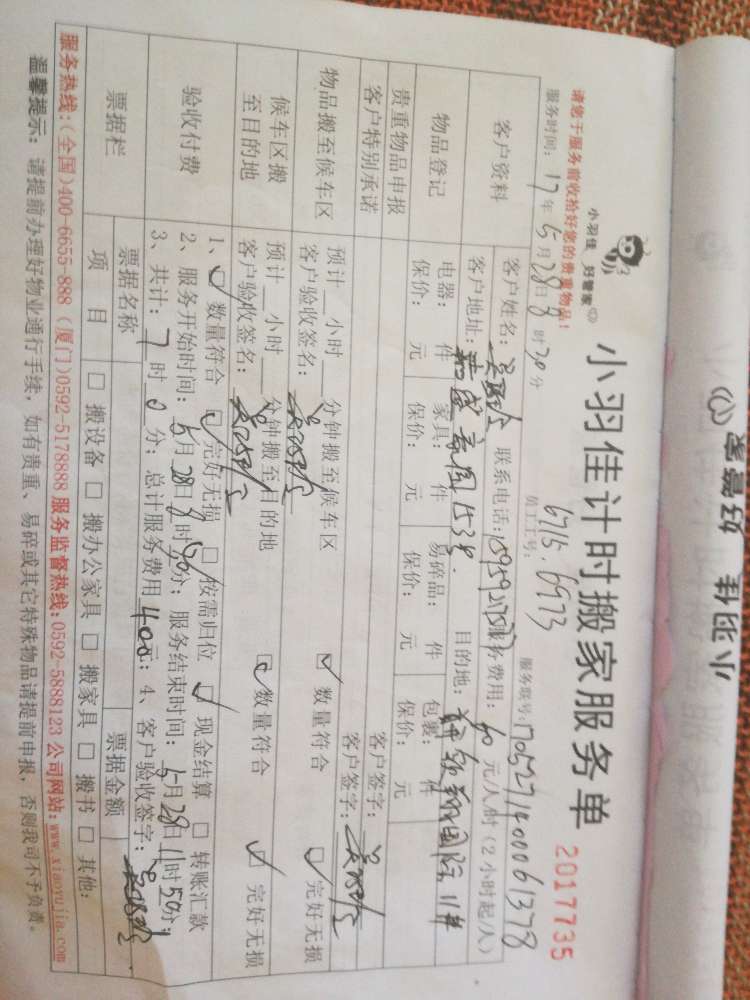 小羽佳 好管家
小羽佳 好管家
小羽佳计时搬家服务单
2017735
请您于服务前收拾好您的贵重物品!
员工工号: 6715.6973
服务联号: 1705271400061378
服务时间: 17年5月28日8时30分
客户资料
客户姓名: 联系电话: 服务费用: 60元/人/时(2小时起/人)
客户地址: 目的地:
物品登记
电器: 件 家具: 件 易碎品: 件 包裹: 件
保价: 元 保价: 元 保价: 元 保价: 元
贵重物品申报
客户特别承诺
客户签字:
客户签字:
物品搬至候车区
预计 小时 分钟搬至候车区
客户验收签名:
☑ 数量符合 ☑ 完好无损
候车区搬至目的地
预计 小时 分钟搬至目的地
客户验收签名:
☑ 数量符合 ☑ 完好无损
验收付费
1、☑ 数量符合 ☑ 完好无损 □ 按需归位 ☑ 现金结算 □ 转账汇款
2、服务开始时间: 5月28日8时50分; 服务结束时间: 5月28日11时50分;
3、共计: 7时0分; 总计服务费用400元; 4、客户验收签字:
票据栏
票据名称 票据金额
项目 □ 搬设备 □ 搬办公家具 □ 搬家具 □ 搬书 □ 其他:
服务热线:(全国)400-6655-888 (厦门)0592-5178888 服务监督热线:0592-5888123 公司网站:www.xiaoyujia.com
温馨提示: 请提前办理好物业通行手续, 如有贵重、易碎或其它特殊物品请提前申报, 否则我司不予负责。